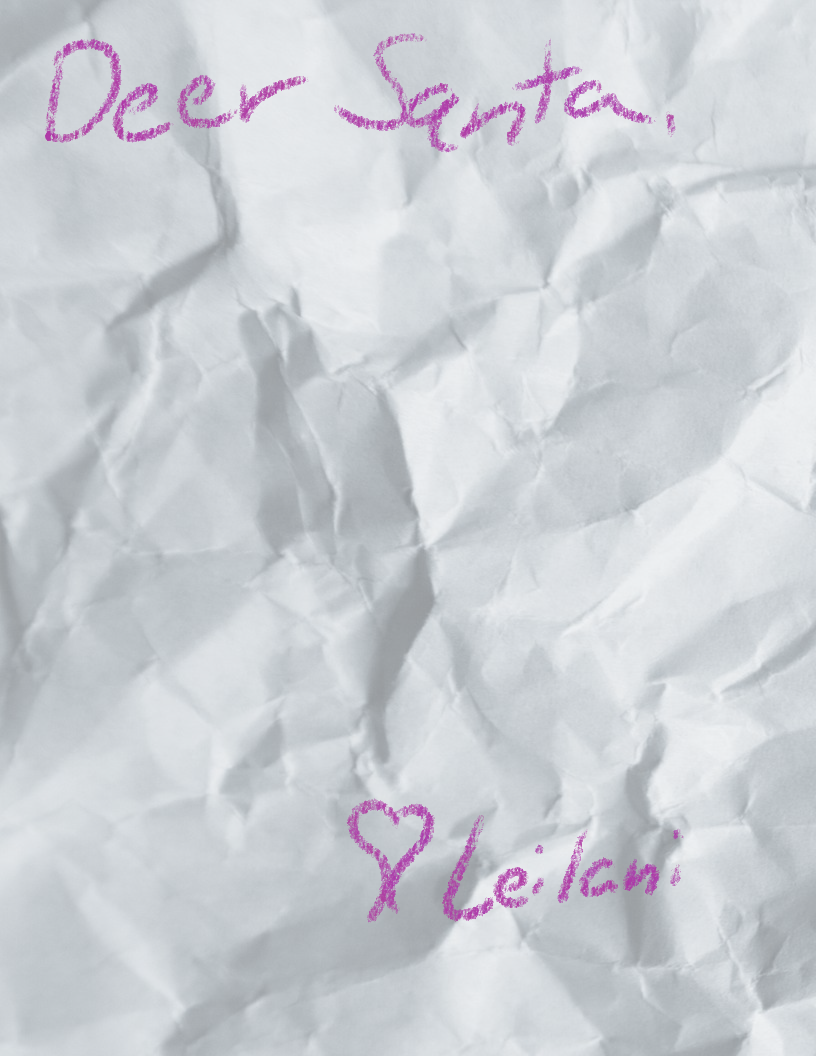 Deer Santa,
♡ Leilani